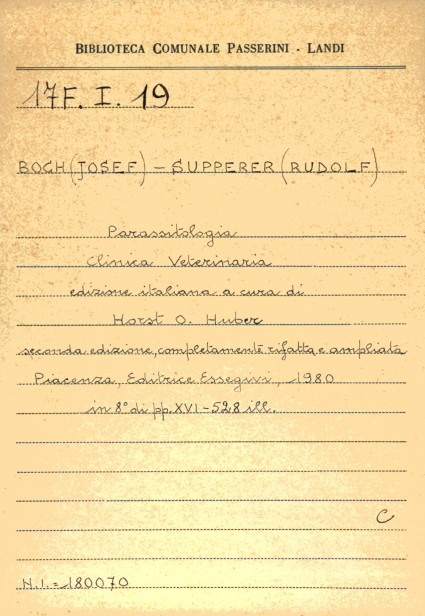 BIBLIOTECA COMUNALE PASSERINI - LANDI
17F. I. 19
BOCH (JOSEF) - SUPPERER (RUDOLF)
Parassitologia
Clinica Veterinaria
edizione italiana a cura di
Horst O. Huber
seconda edizione, completamente rifatta e ampliata
Piacenza, Editrice Essegivi, 1980
in 8° di pp. XVI-528 ill.
C
N.I.=180070